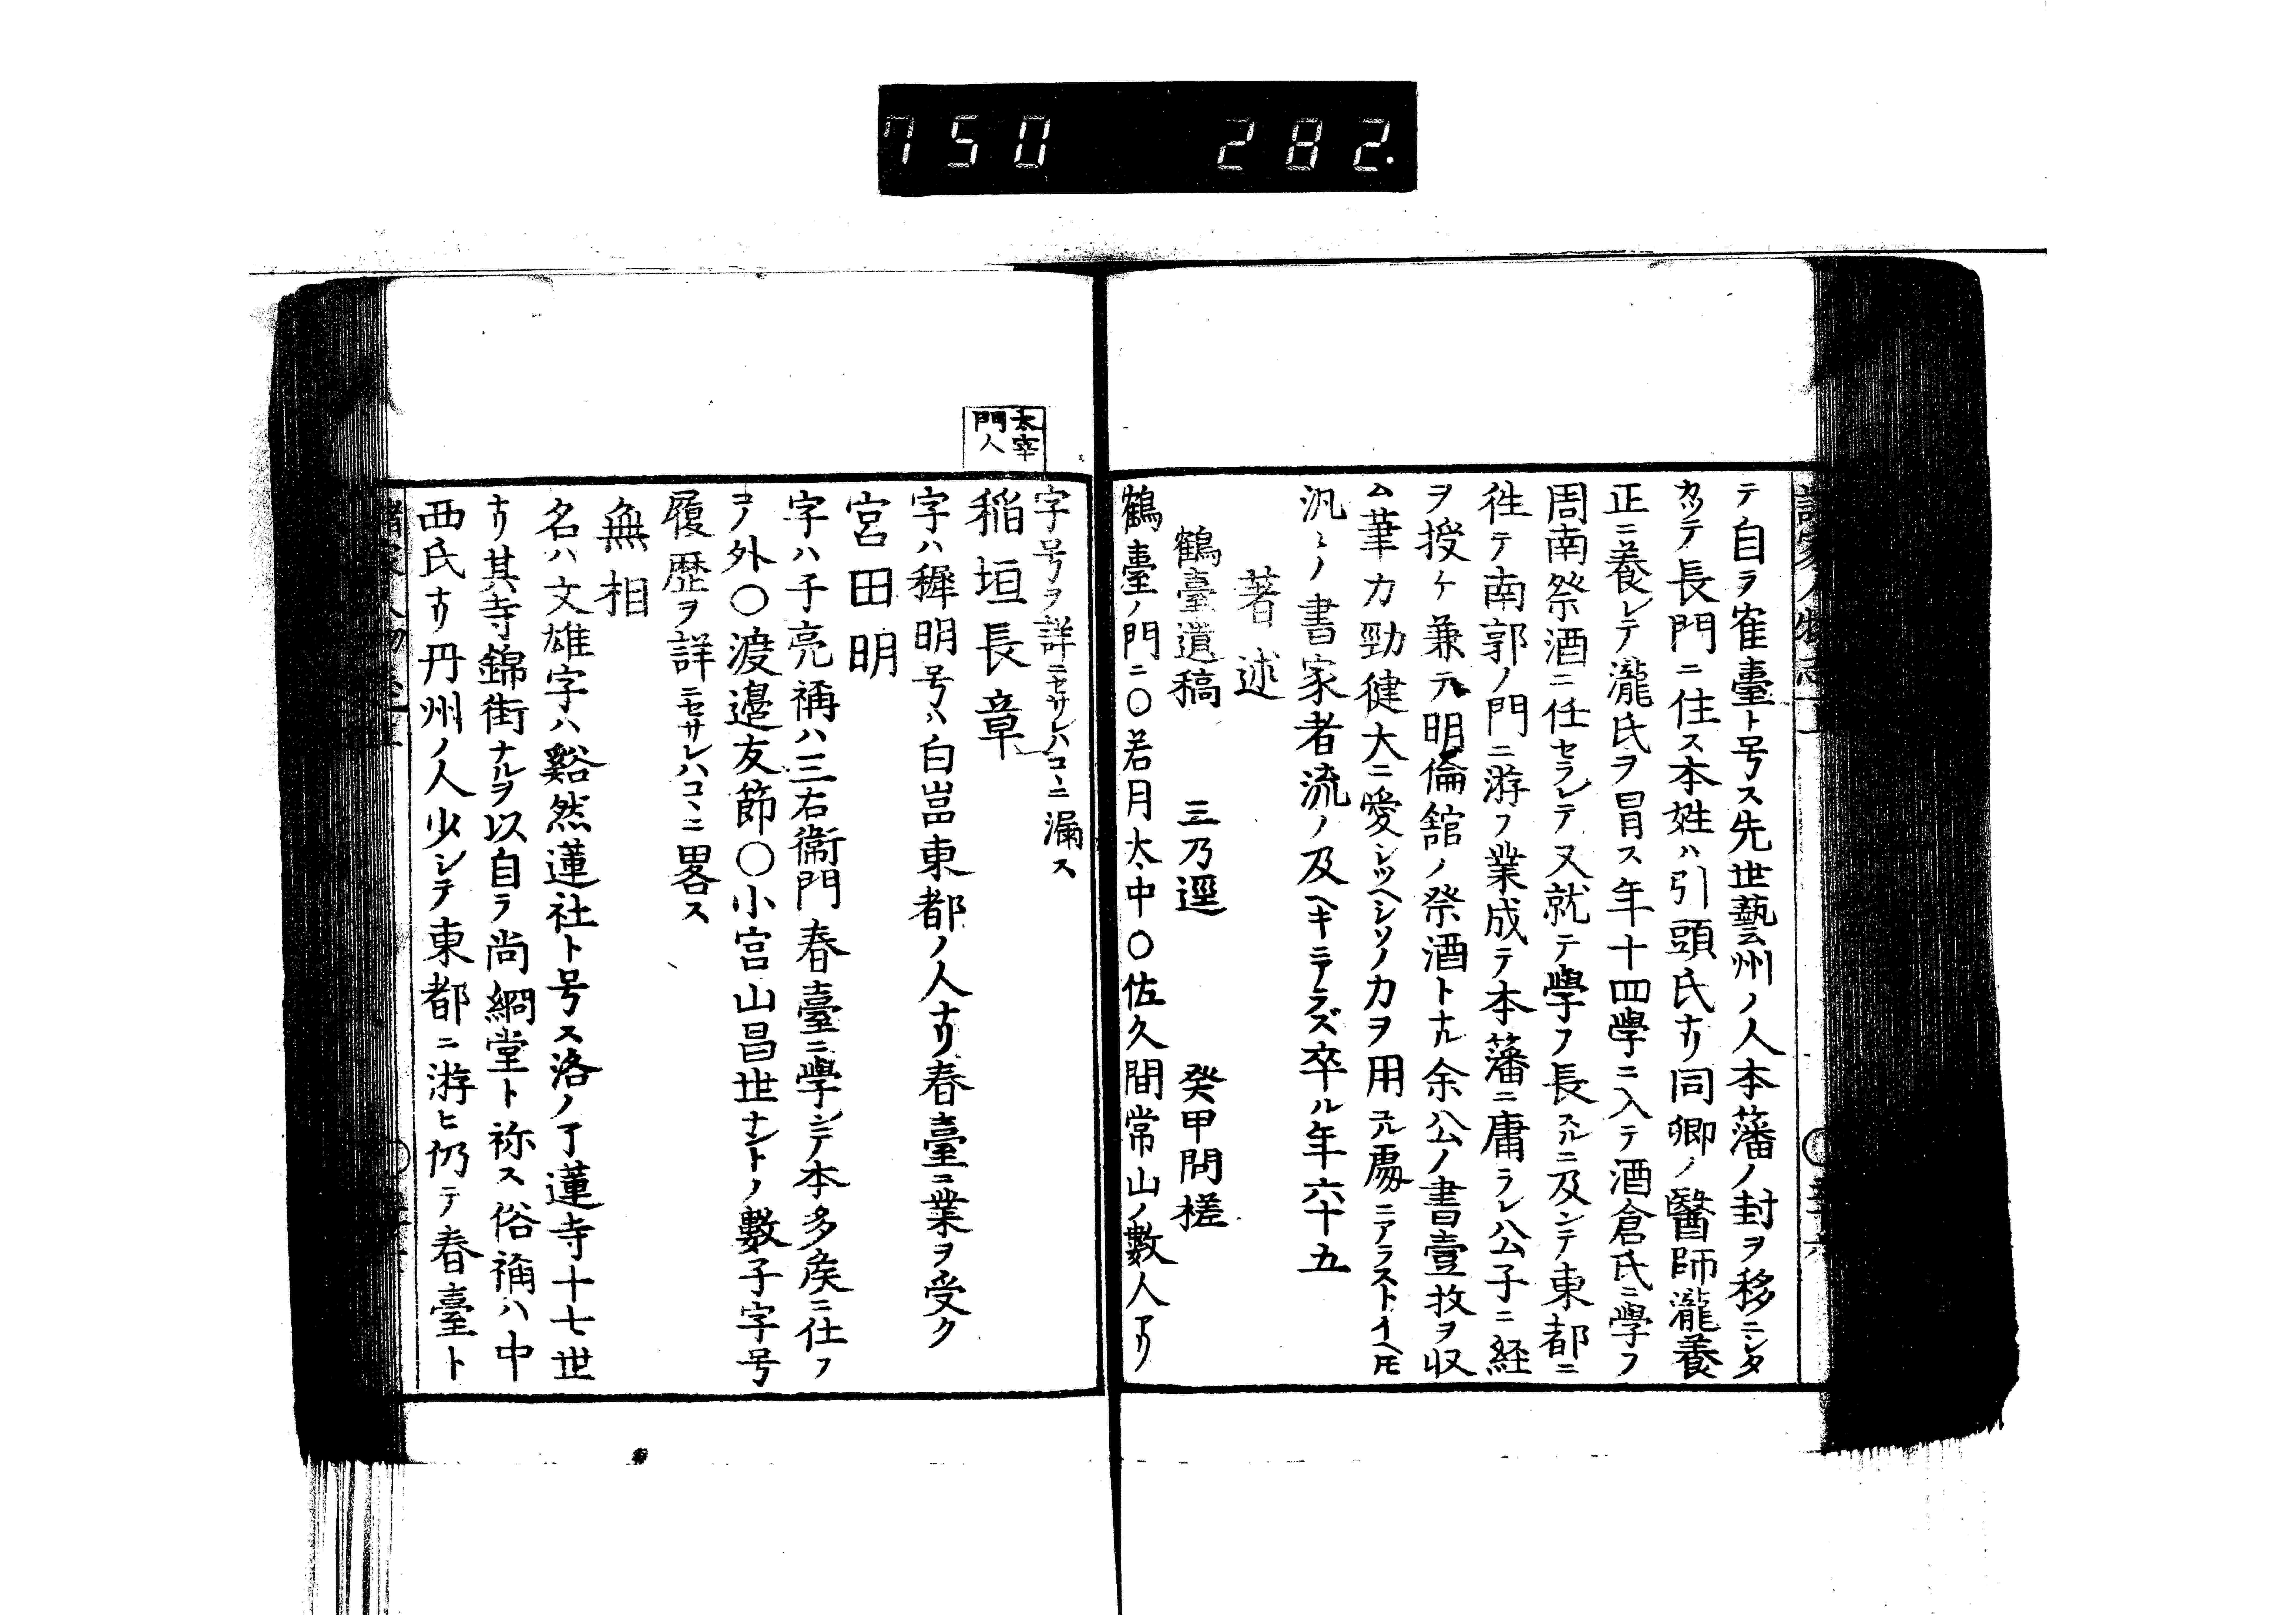 750 282.
テ自ヲ寉臺ト号ス先世藝州ノ人本藩ノ封ヲ移ニシタ
カツテ長門ニ住ス本姓ハ引頭氏ナリ同卿ノ醫師瀧養
正ニ養レテ瀧氏ヲ冒ス年十四學ニ入テ酒倉氏ニ學フ
周南祭酒ニ任セラレテ又就テ學フ長スルニ及ンテ東都ニ
徃テ南郭ノ門ニ游フ業成テ本藩ニ庸ラレ公子ニ経
ヲ授ケ兼テ明倫舘ノ祭酒トナル余公ノ書壹枚ヲ収
ム筆力勁健大ニ愛シツヘシソノ力ヲ用ユル處ニアラストイヘトモ
汎々ノ書家者流ノ及ヘキニアラズ卒ル年六十五
著述
鶴臺遺稿 三乃逕 癸甲問槎
鶴臺ノ門ニ〇若月大中〇佐久間常山ノ數人アリ
字号ヲ詳ニセサレハコヽニ漏ス
太宰門人
稲垣長章
字ハ穉明号ハ白嵓東都ノ人ナリ春臺ニ業ヲ受ク
宮田明
字ハ子亮稱ハ三右衞門春臺ニ學シテ本多矦ニ仕フ
コノ外〇渡邉友節〇小宮山昌世ナントノ數子字号
履歴ヲ詳ニセサレハコヽニ畧ス
無相
名ハ文雄字ハ谿然蓮社ト号ス洛ノ了蓮寺十七世
ナリ其寺錦街ナルヲ以自ラ尚綗堂ト称ス俗稱ハ中
西氏ナリ丹州ノ人少シテ東都ニ游ヒ仍テ春臺ト